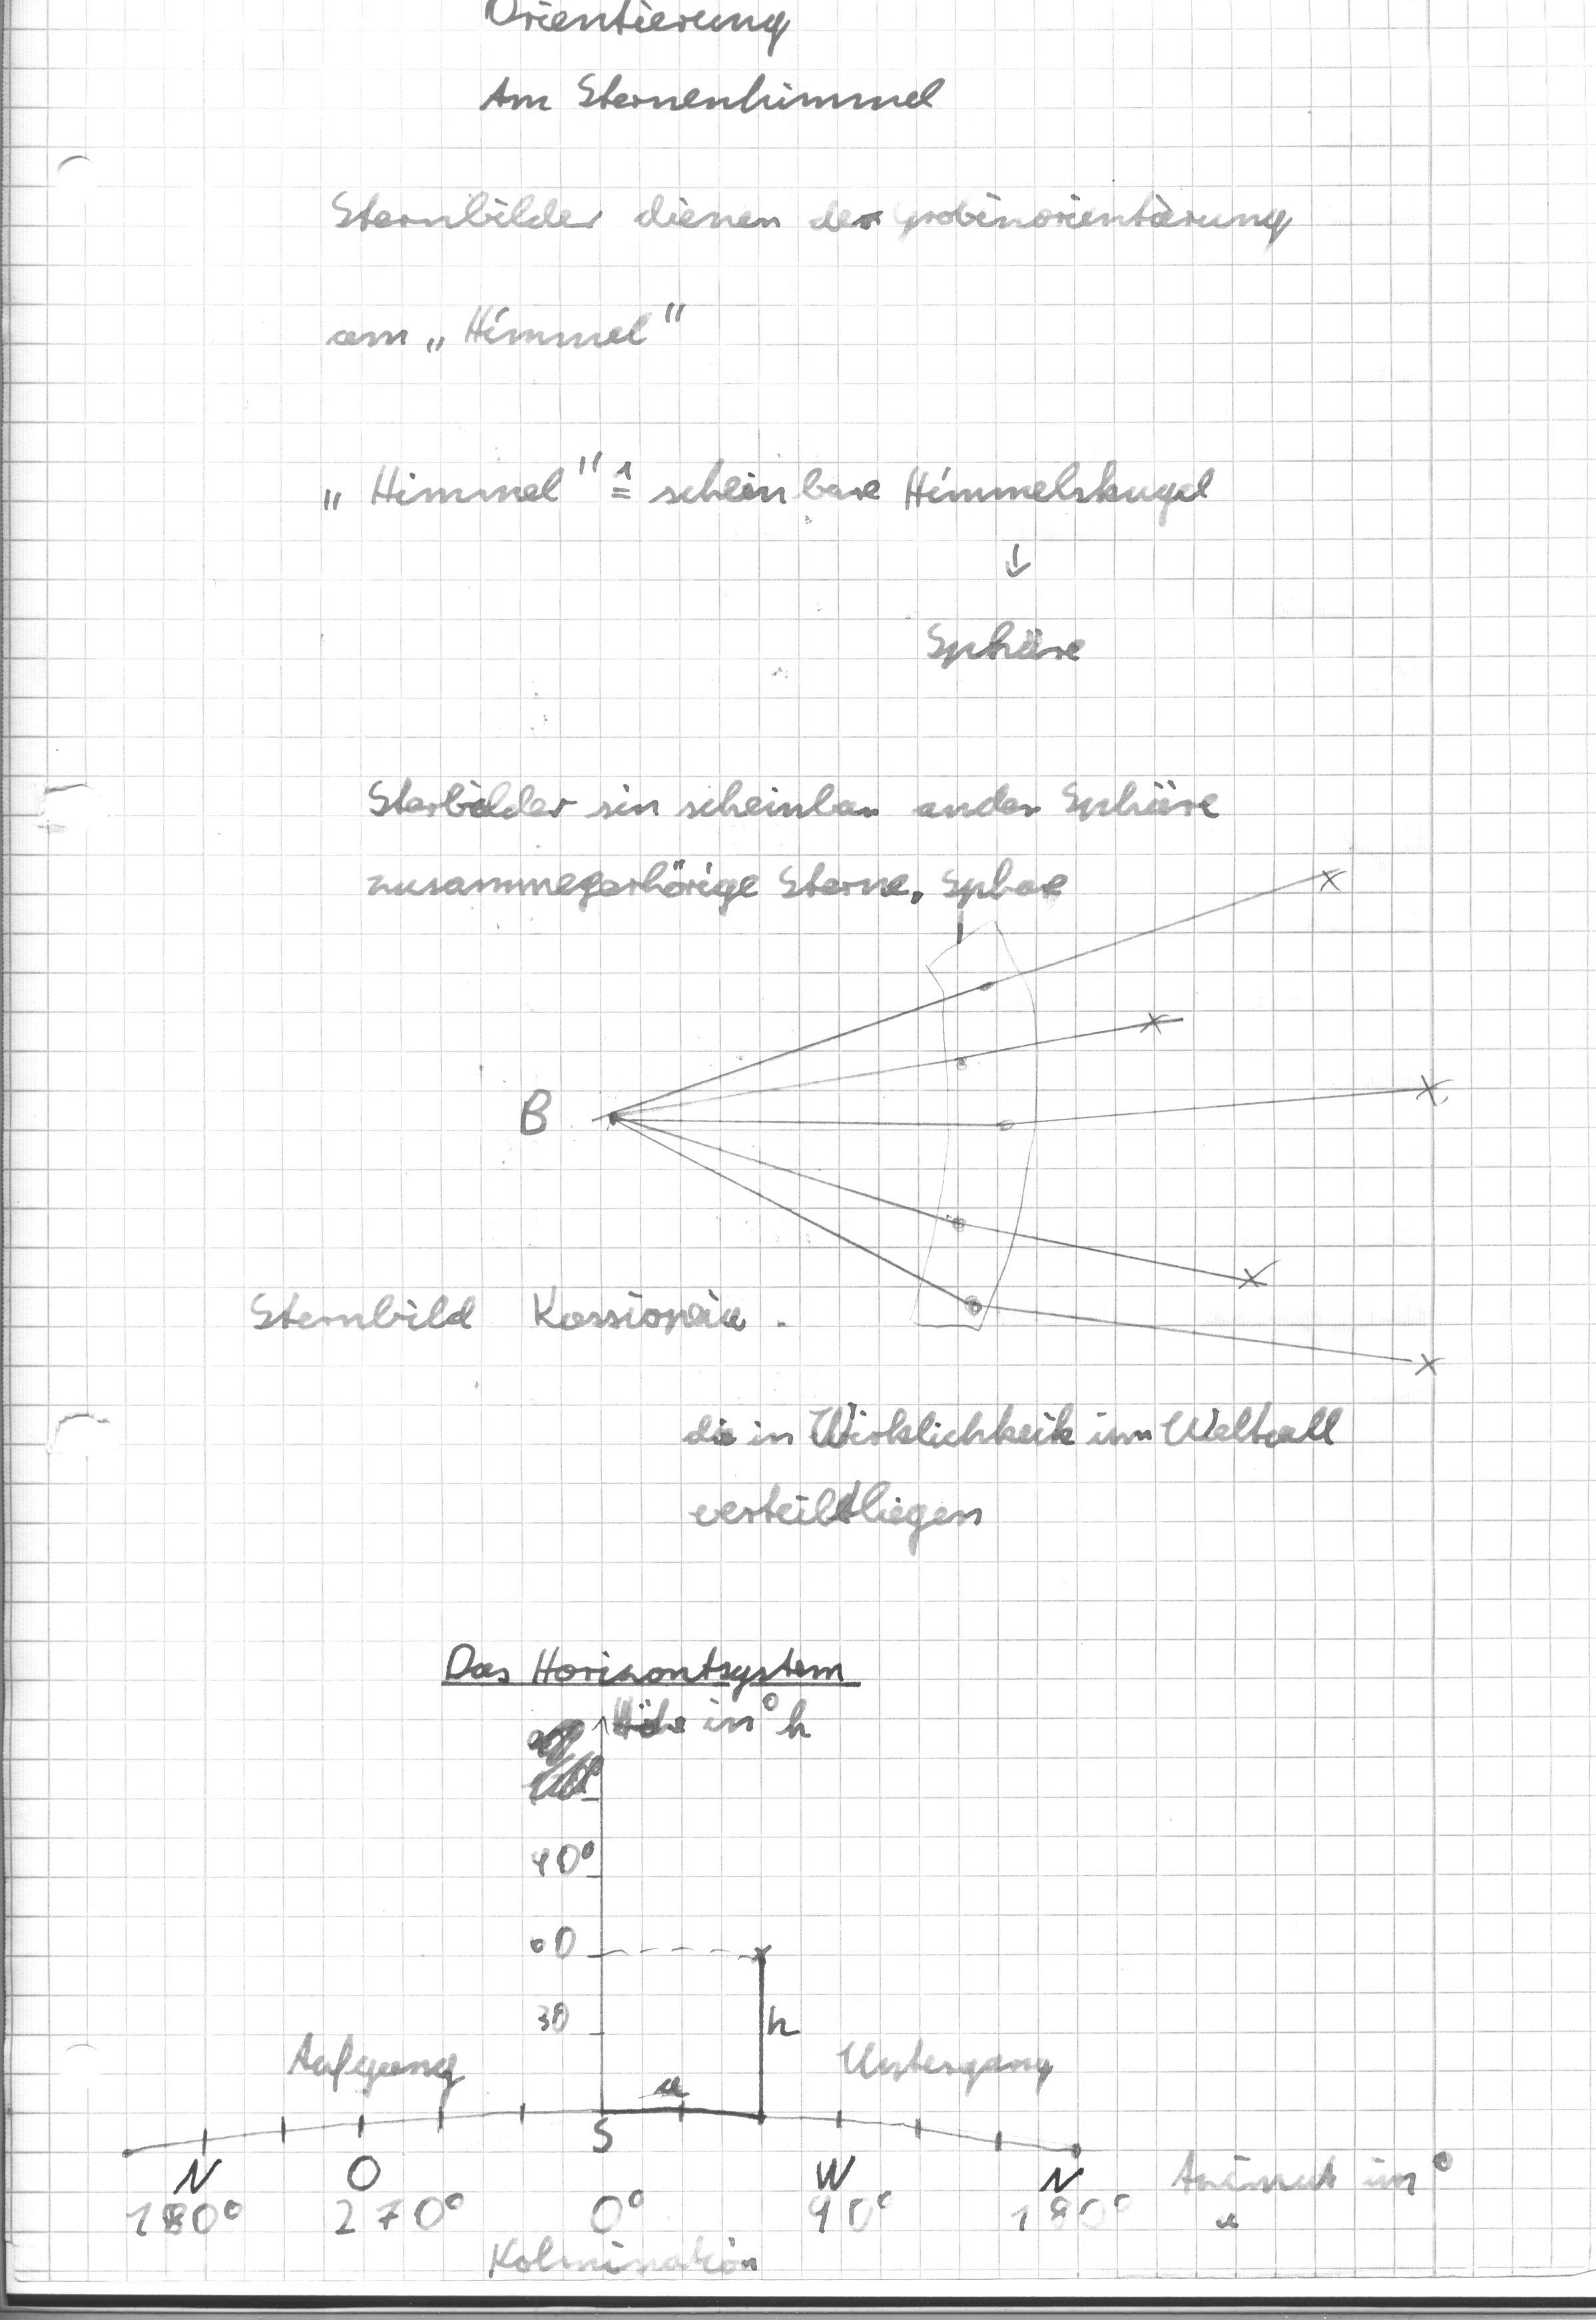 Orientierung
Am Sternenhimmel
Sternbilder dienen der Grobinorientierung
am „Himmel"
„Himmel" ≙ scheinbare Himmelskugel
↓
Sphäre
Sterbilder sin scheinbar an der Sphäre
zusammegerhörige Sterne. Sphäre
B
Sternbild Kassiopeia.
die in Wirklichkeit im Weltall
verteilt liegen
Das Horizontsystem
Höhe in ° h
90°
60
30
h
Aufgang
Untergang
a
S
N O W N
Azimut in °
180° 270° 0° 90° 180°
a
Kolmination